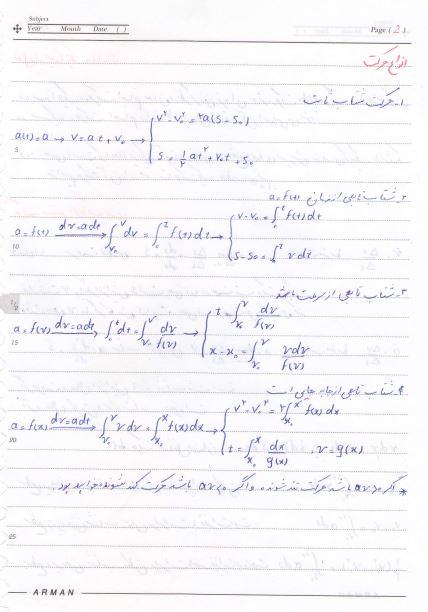 Subject
Year Month Date ( )
Page ( 2 )
انواع حرکت
۱- حرکت شتاب ثابت
a(t)=a → v=at+v₀ → { v²-v₀²=۲a(s-s₀)
s=½at²+v₀t+s₀
5
۲- شتاب تابعی از زمان a=f(t)
a=f(t) —dv=adt→ ∫_{v₀}^{v} dv=∫_{0}^{t} f(t)dt → { v-v₀=∫_{0}^{t} f(t)dt
s-s₀=∫_{0}^{t} vdt
10
۳- شتاب تابعی از سرعت باشد
a=f(v) —dv=adt→ ∫_{0}^{t} dt=∫_{v₀}^{v} dv/f(v) → { t=∫_{v₀}^{v} dv/f(v)
x-x₀=∫_{v₀}^{v} vdv/f(v)
15
۴- شتاب تابعی از جابه جایی است
a=f(x) —dv=adt→ ∫_{v₀}^{v} vdv=∫_{x₀}^{x} f(x)dx → { v²-v₀²=۲∫_{x₀}^{x} f(x)dx
t=∫_{x₀}^{x} dx/g(x) , v=g(x)
20
* اگر av>0 باشد حرکت تند شونده و اگر av<0 باشد حرکت کند شونده خواهد بود.
25
ARMAN